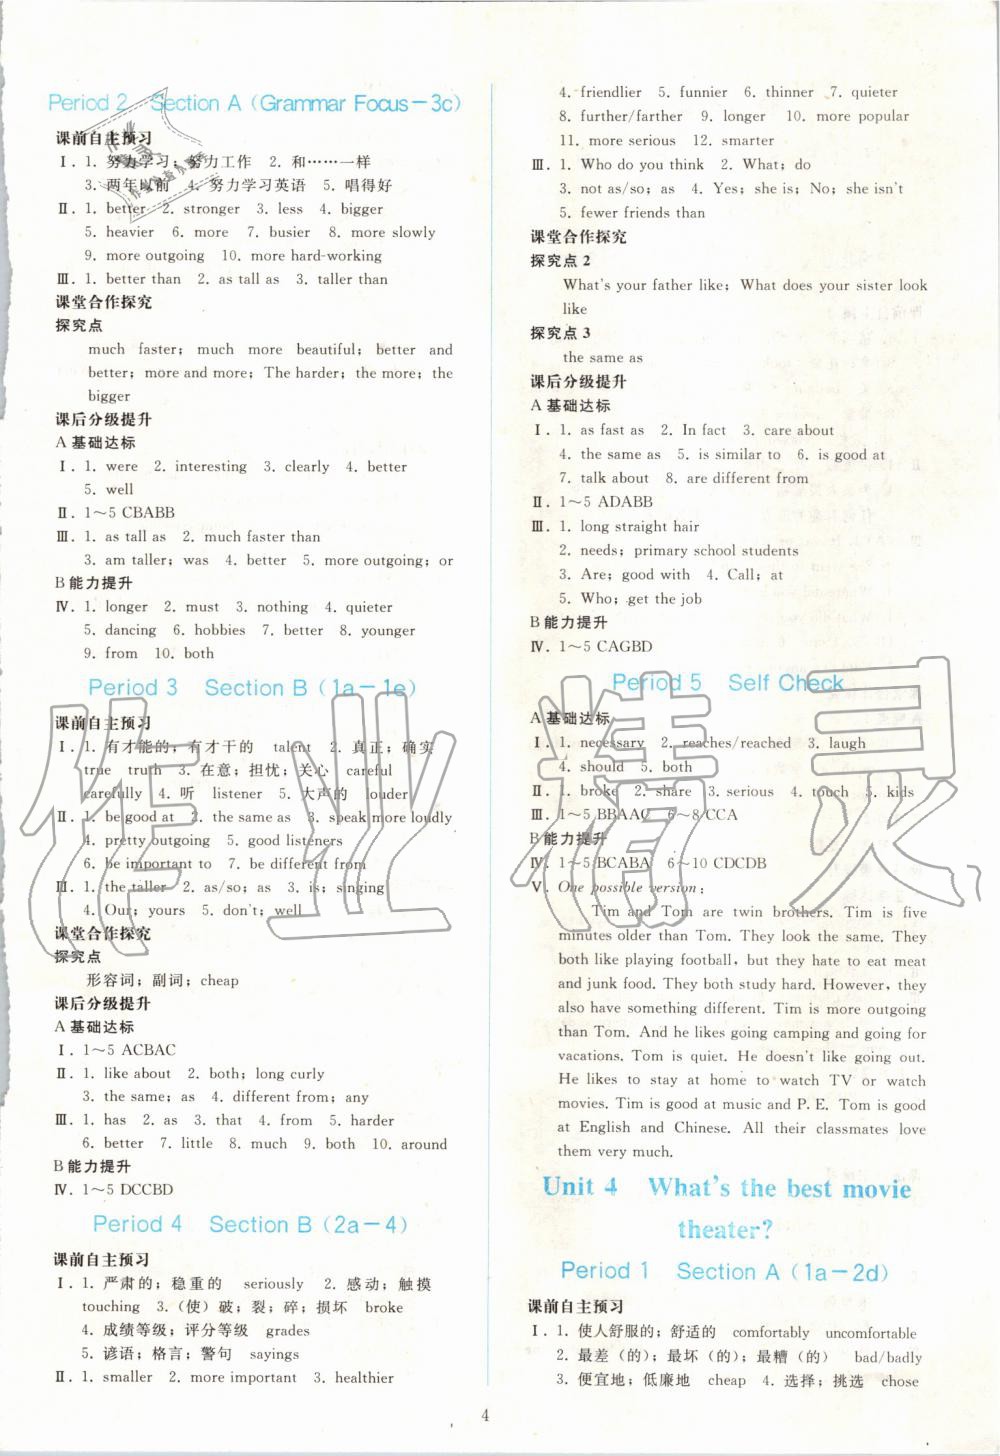 Period 2 Section A (Grammar Focus-3c)
课前自主预习
Ⅰ. 1. 努力学习;努力工作 2. 和……一样
3. 两年以前 4. 努力学习英语 5. 唱得好
Ⅱ. 1. better 2. stronger 3. less 4. bigger
5. heavier 6. more 7. busier 8. more slowly
9. more outgoing 10. more hard-working
Ⅲ. 1. better than 2. as tall as 3. taller than
课堂合作探究
探究点
much faster; much more beautiful; better and
better; more and more; The harder; the more; the
bigger
课后分级提升
A 基础达标
Ⅰ. 1. were 2. interesting 3. clearly 4. better
5. well
Ⅱ. 1~5 CBABB
Ⅲ. 1. as tall as 2. much faster than
3. am taller; was 4. better 5. more outgoing; or
B 能力提升
Ⅳ. 1. longer 2. must 3. nothing 4. quieter
5. dancing 6. hobbies 7. better 8. younger
9. from 10. both
Period 3 Section B (1a-1e)
课前自主预习
Ⅰ. 1. 有才能的;有才干的 talent 2. 真正;确实
true truth 3. 在意;担忧;关心 careful
carefully 4. 听 listener 5. 大声的 louder
Ⅱ. 1. be good at 2. the same as 3. speak more loudly
4. pretty outgoing 5. good listeners
6. be important to 7. be different from
Ⅲ. 1. the taller 2. as/so; as 3. is; singing
4. Our; yours 5. don't; well
课堂合作探究
探究点
形容词;副词;cheap
课后分级提升
A 基础达标
Ⅰ. 1~5 ACBAC
Ⅱ. 1. like about 2. both; long curly
3. the same; as 4. different from; any
Ⅲ. 1. has 2. as 3. that 4. from 5. harder
6. better 7. little 8. much 9. both 10. around
B 能力提升
Ⅳ. 1~5 DCCBD
Period 4 Section B (2a-4)
课前自主预习
Ⅰ. 1. 严肃的;稳重的 seriously 2. 感动;触摸
touching 3. (使)破;裂;碎;损坏 broke
4. 成绩等级;评分等级 grades
5. 谚语;格言;警句 sayings
Ⅱ. 1. smaller 2. more important 3. healthier
4. friendlier 5. funnier 6. thinner 7. quieter
8. further/farther 9. longer 10. more popular
11. more serious 12. smarter
Ⅲ. 1. Who do you think 2. What; do
3. not as/so; as 4. Yes; she is; No; she isn't
5. fewer friends than
课堂合作探究
探究点 2
What's your father like; What does your sister look
like
探究点 3
the same as
课后分级提升
A 基础达标
Ⅰ. 1. as fast as 2. In fact 3. care about
4. the same as 5. is similar to 6. is good at
7. talk about 8. are different from
Ⅱ. 1~5 ADABB
Ⅲ. 1. long straight hair
2. needs; primary school students
3. Are; good with 4. Call; at
5. Who; get the job
B 能力提升
Ⅳ. 1~5 CAGBD
Period 5 Self Check
A 基础达标
Ⅰ. 1. necessary 2. reaches/reached 3. laugh
4. should 5. both
Ⅱ. 1. broke 2. share 3. serious 4. touch 5. kids
Ⅲ. 1~5 BBAAC 6~8 CCA
B 能力提升
Ⅳ. 1~5 BCABA 6~10 CDCDB
Ⅴ. One possible version:
Tim and Tom are twin brothers. Tim is five
minutes older than Tom. They look the same. They
both like playing football, but they hate to eat meat
and junk food. They both study hard. However, they
also have something different. Tim is more outgoing
than Tom. And he likes going camping and going for
vacations. Tom is quiet. He doesn't like going out.
He likes to stay at home to watch TV or watch
movies. Tim is good at music and P. E. Tom is good
at English and Chinese. All their classmates love
them very much.
Unit 4 What's the best movie
theater?
Period 1 Section A (1a-2d)
课前自主预习
Ⅰ. 1. 使人舒服的;舒适的 comfortably uncomfortable
2. 最差(的);最坏(的);最糟(的) bad/badly
3. 便宜地;低廉地 cheap 4. 选择;挑选 chose
4
作业精灵